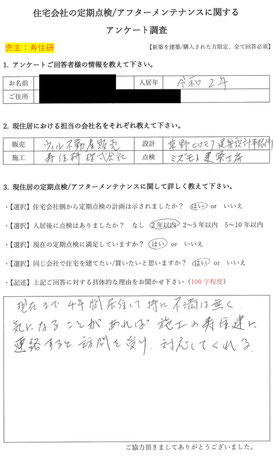 住宅会社の定期点検/アフターメンテナンスに関する
アンケート調査
売主：寿住研
【新築を建築/購入された方限定、全て回答必須】
1. アンケートご回答者様の情報を教えて下さい。
お名前 入居年 令和2年
ご住所
2. 現住居における担当の会社名をそれぞれ教えて下さい。
販売 ウィル不動産販売 設計
施工 寿住研株式会社 点検
3. 現住居の定期点検/アフターメンテナンスに関して詳しく教えて下さい。
・【選択】住宅会社側から定期点検の計画は示されましたか？ はい or いいえ
・【選択】入居後に点検はありましたか？ なし 2年以内 2～5年以内 5～10年以内
・【選択】現在の定期点検に満足していますか？ はい or いいえ
・【選択】同じ会社で住宅を建てたい/買いたいと思いますか？ はい or いいえ
・【記述】上記ご回答に対する具体的な理由をお聞かせ下さい（100字程度）
現在まで4年間居住して特に不満は無く
気になることがあれば施工の寿住建に
連絡すると訪問を受け、対応してくれる。
ご協力頂きましてありがとうございました。